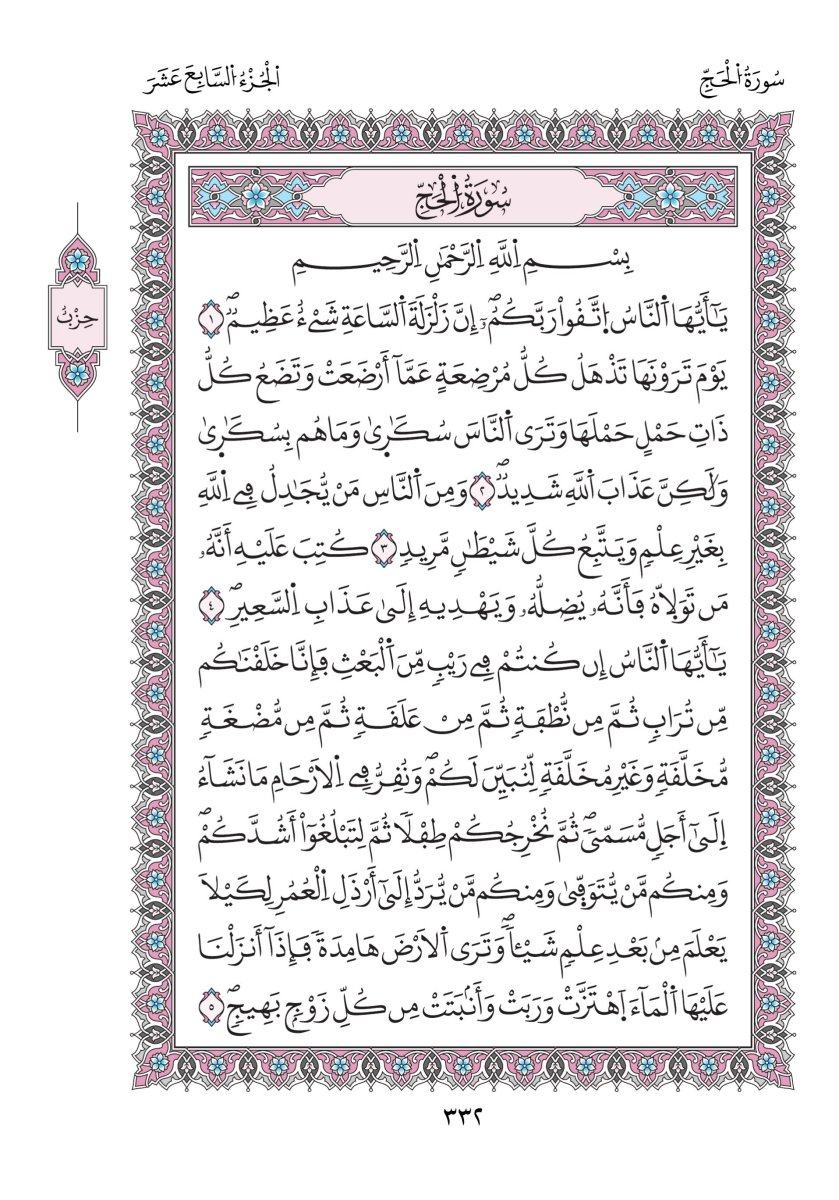 سُورَةُ الْحَجِّ
الْجُزْءُ السَّابِعَ عَشَرَ
سُورَةُ الْحَجِّ
بِسْمِ اِللَّهِ اِلرَّحْمَٰنِ اِلرَّحِيمِ
حِزْبٌ
يَٰٓأَيُّهَا اَلنَّاسُ اُ۪تَّقُواْ رَبَّكُمُۥٓۖ إِنَّ زَلْزَلَةَ اَلسَّاعَةِ شَےْءٌ عَظِيمٌۖ ١
يَوْمَ تَرَوْنَهَا تَذْهَلُ كُلُّ مُرْضِعَةٍ عَمَّآ أَرْضَعَتْ وَتَضَعُ كُلُّ
ذَاتِ حَمْلٍ حَمْلَهَا وَتَرَى اَلنَّاسَ سُكَٰرۭيٰ وَمَا هُم بِسُكَٰرۭيٰ
وَلَٰكِنَّ عَذَابَ اَللَّهِ شَدِيدٌۖ ٢ وَمِنَ اَلنَّاسِ مَنْ يُّجَٰدِلُ فِے اِللَّهِ
بِغَيْرِ عِلْمٖ وَيَتَّبِعُ كُلَّ شَيْطَٰنٖ مَّرِيدٖ ٣ كُتِبَ عَلَيْهِ أَنَّهُۥ
مَن تَوَلَّاهُ فَأَنَّهُۥ يُضِلُّهُۥ وَيَهْدِيهِ إِلَىٰ عَذَابِ اِلسَّعِيرِۖ ٤
يَٰٓأَيُّهَا اَلنَّاسُ إِن كُنتُمْ فِے رَيْبٖ مِّنَ اَلْبَعْثِ فَإِنَّا خَلَقْنَٰكُم
مِّن تُرَابٖ ثُمَّ مِن نُّطْفَةٖ ثُمَّ مِنْ عَلَقَةٖ ثُمَّ مِن مُّضْغَةٖ
مُّخَلَّقَةٖ وَغَيْرِ مُخَلَّقَةٖ لِّنُبَيِّنَ لَكُمْۖ وَنُقِرُّ فِے اِلَارْحَامِ مَا نَشَآءُ
اِلَىٰٓ أَجَلٖ مُّسَمّيٗۖ ثُمَّ نُخْرِجُكُمْ طِفْلاٗ ثُمَّ لِتَبْلُغُوٓاْ أَشُدَّكُمْۖ
وَمِنكُم مَّنْ يُّتَوَفّۭيٰ وَمِنكُم مَّنْ يُّرَدُّ إِلَىٰٓ أَرْذَلِ اِلْعُمُرِ لِكَيْلَا
يَعْلَمَ مِنۢ بَعْدِ عِلْمٖ شَيْـٔاٗۖ وَتَرَى اَلَارْضَ هَامِدَةٗ فَإِذَآ أَنزَلْنَا
عَلَيْهَا اَلْمَآءَ اَ۪هْتَزَّتْ وَرَبَتْ وَأَنۢبَتَتْ مِن كُلِّ زَوْجِۢ بَهِيجٖۖ ٥
٣٣٢